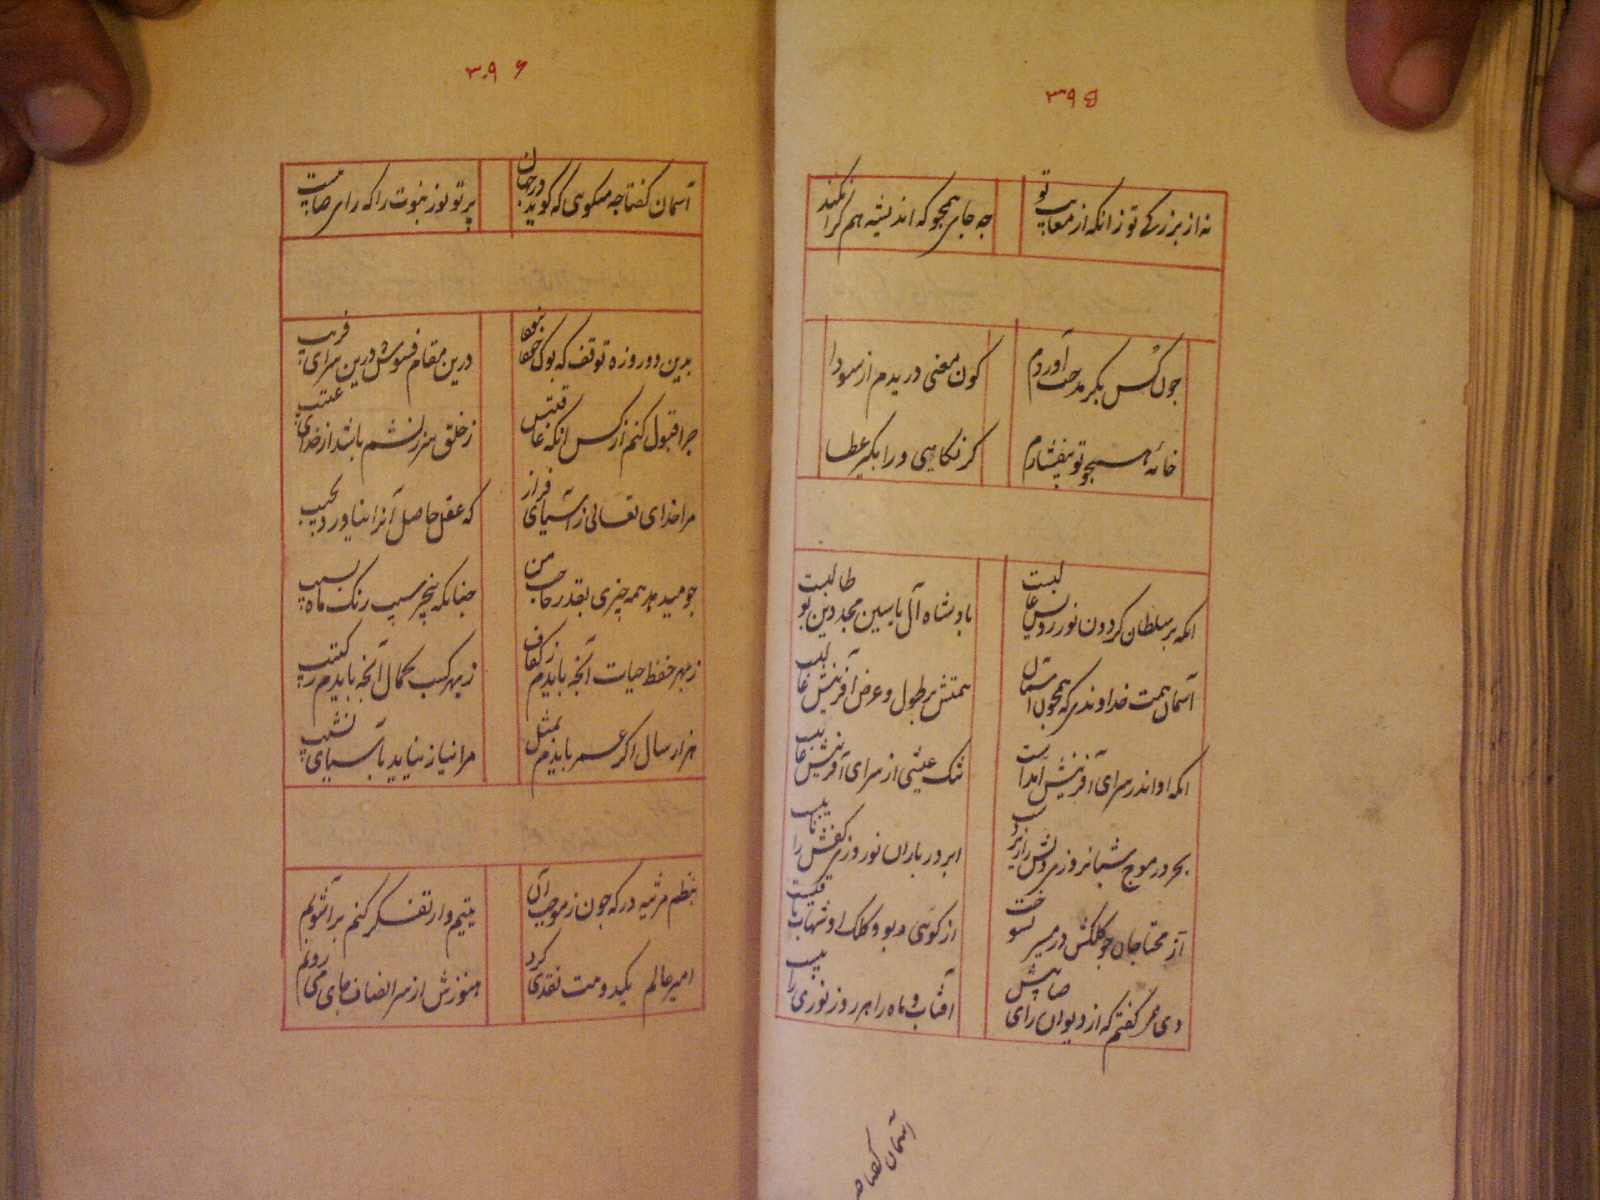 ۳۹۵
نه از بزرگی تو زانکه از معایب تو
جه جای همجو که اندیشه هم کرا نکند
جون کس بکر مدحت آوردم
کون معنی دریدم از سودا
خانه همجو تو بیفشاردم
کر نکاهی ورا بگیر عطا
انکه بر سلطان کردون نور رویش غالبست
بادشاه آل یاسین مجد دین بو طالبست
آسمان همت خداوندی که همچون آسمان
همتش بر طول و عرض آفرینش غالب
انکه او اندر سرای آفرینش آمداست
تنک عیشی از سرای آفرینش غایب
بحر در موج شبانروزی دلش را
ابر در باران نوروزی کفش را نایب
آز محتاجان جو کلکش در مسیر
از کوهی دیو و کلک او شهاب ثاقبست
دی همی کفتم که از دیوان رای صایبش
آفتاب و ماه را هر روز نوری راتب
آسمان کفتا جه
۳۹۶
آسمان کفتا جه میکوهی که کوید در جهان
پرتو نور نبوت را که رای صایبست
بدین دو روزه توقف که بوک خود نبود
درین مقام فسوس و درین سرای فریب
جرا قبول کنم از کس انکه عاقبتش
ز خلق سرزنشم باشد از خدای عتیب
مرا خدای تعالی ز آسیای فراز
که عقل حاصل آنرا نیاورد بحسیب
جو میدهد همه چیزی بقدر حاجت من
جنانکه بیخبر سیب رنک ماه بسیب
ز بهر حفظ حیات آنچه بایدم ز کفاف
ز بهر کسب کمال آنچه بایدم ز کتیب
هزار سال اکر عمر بایدم بمثل
مرا نیاز نیاید بآسیای نشیب
بنظم مرثیه در که جون ز موجب آن
یتیم وار تفکر کنم برآشوبم
امیر عالم یکدومت نقدی کرد
هنوزش از سر انصاف جای می روبم